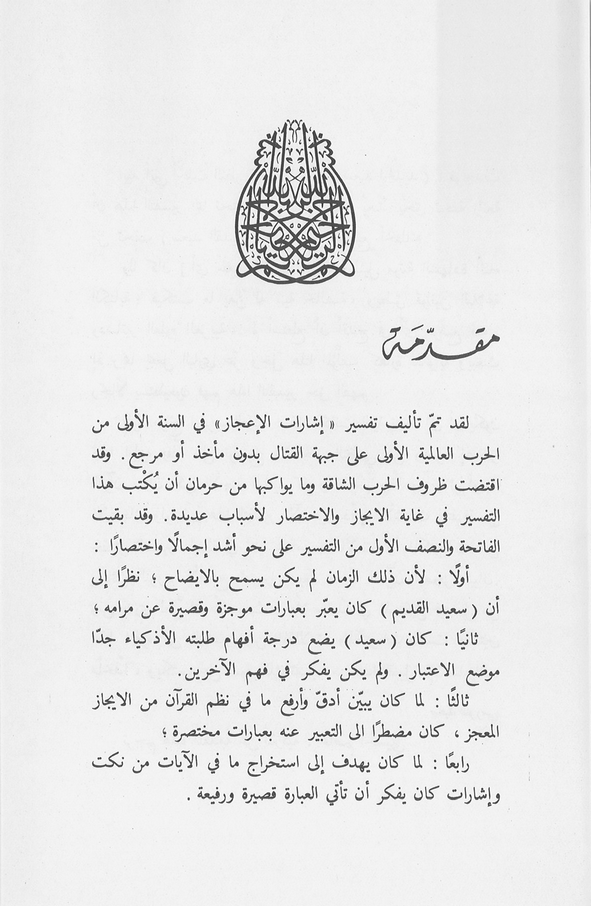 مقدّمَة
لقد تمّ تأليف تفسير « إشارات الإعجاز» في السنة الأولى من
الحرب العالمية الأولى على جبهة القتال بدون مأخذ أو مرجع. وقد
اقتضت ظروف الحرب الشاقة وما يواكبها من حرمان أن يُكْتب هذا
التفسير في غاية الايجاز والاختصار لأسباب عديدة. وقد بقيت
الفاتحة والنصف الأول من التفسير على نحو أشد إجمالًا واختصارًا :
أولًا : لأن ذلك الزمان لم يكن يسمح بالايضاح ؛ نظرًا إلى
أن ( سعيد القديم ) كان يعبّر بعبارات موجزة وقصيرة عن مرامه ؛
ثانيًا : كان ( سعيد ) يضع درجة أفهام طلبته الأذكياء جدًا
موضع الاعتبار . ولم يكن يفكر في فهم الآخرين.
ثالثًا : لما كان يبيّن أدقّ وأرفع ما في نظم القرآن من الايجاز
المعجز ، كان مضطرًا الى التعبير عنه بعبارات مختصرة ؛
رابعًا : لما كان يهدف إلى استخراج ما في الآيات من نكت
وإشارات كان يفكر أن تأتي العبارة قصيرة ورفيعة .